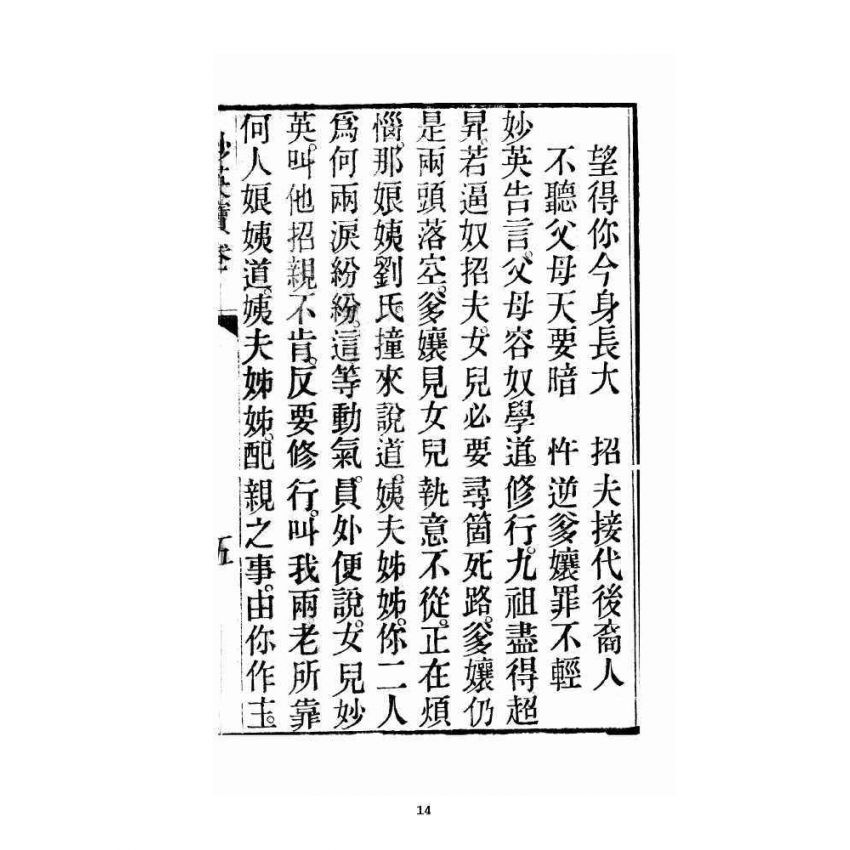 望得你今身長大　招夫接代後裔人
不聽父母天要暗　忤逆爹孃罪不輕
妙英告言。父母容奴學道。修行。九祖盡得超
昇。若逼奴招夫。女兒必要尋箇死路。爹孃仍
是兩頭落空。爹孃見女兒執意不從。正在煩
惱。那娘姨劉氏。撞來說道。姨夫姊姊。你二人
爲何兩淚紛紛。這等動氣。員外便說。女兒妙
英。叫他招親不肯。反要修行。叫我兩老所靠
何人娘姨道。姨夫姊姊。配親之事。由你作主。
妙英寶卷
五
14